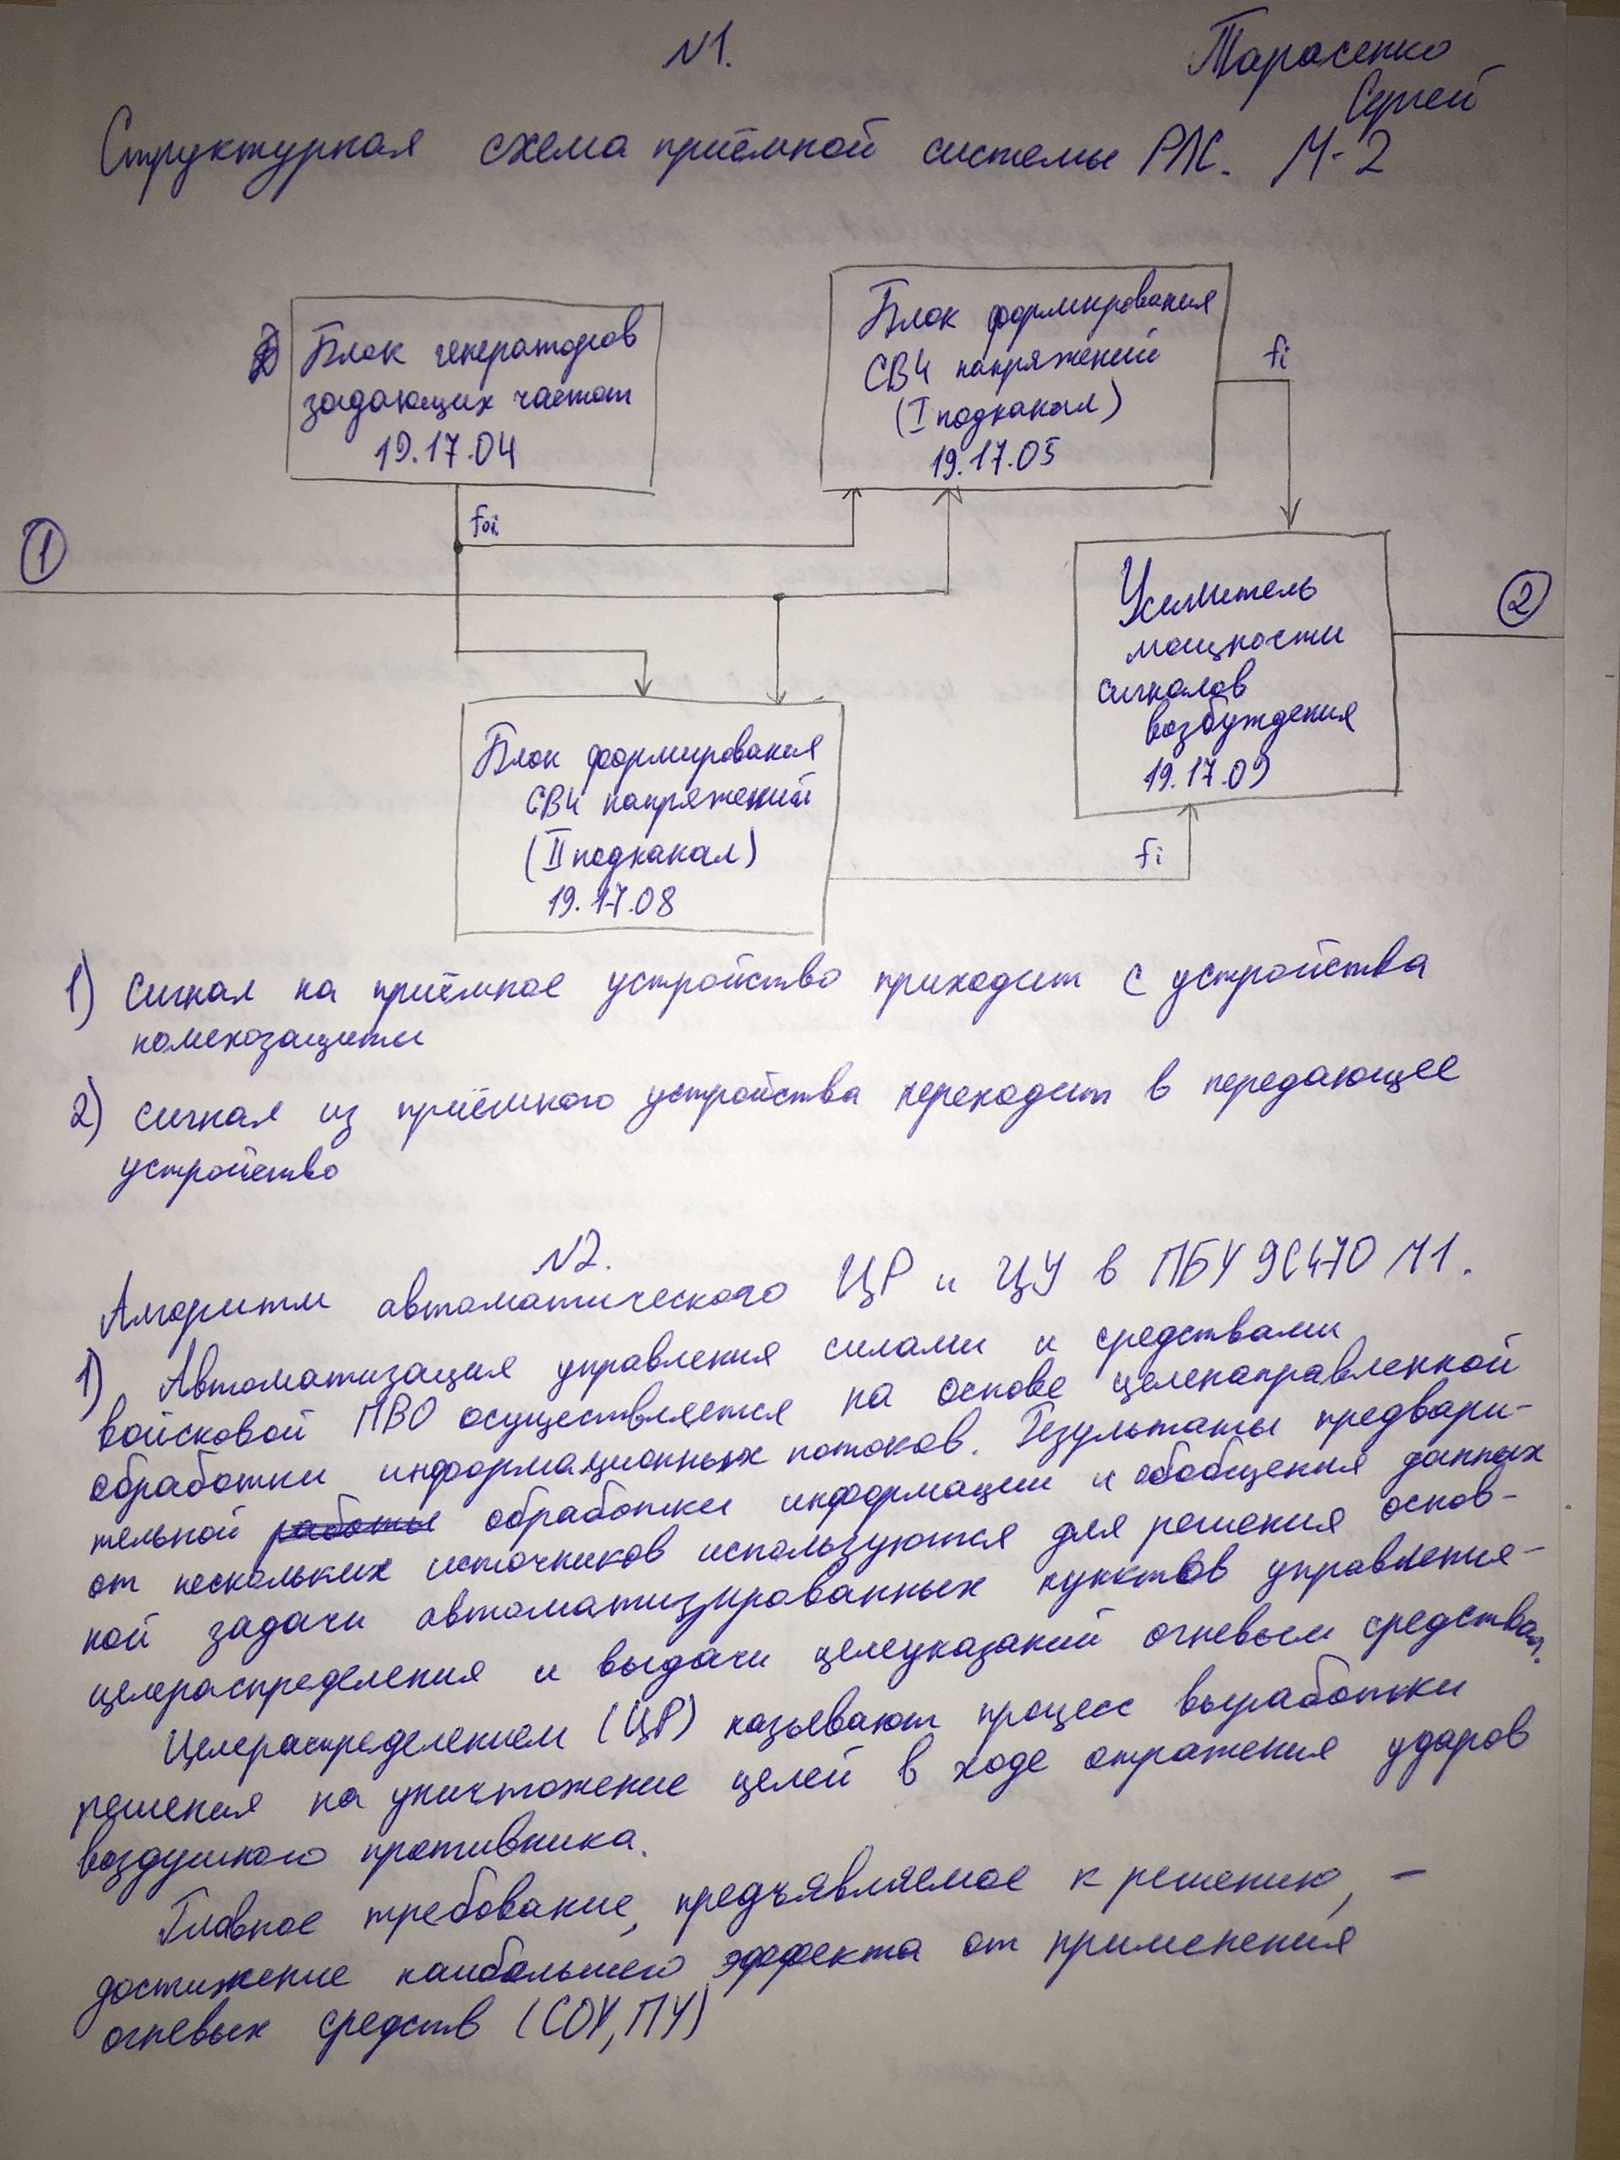 №1.
Тарасенко
Сергей
Структурная схема приёмной системы РЛС. М-2
Блок генераторов
задающих частот
19.17.04
Блок формирования
СВЧ напряжений
(I подканал)
19.17.05
fi
f0i
1
2
Усилитель
мощности
сигналов
возбуждения
19.17.09
Блок формирования
СВЧ напряжений
(II подканал)
19.17.08
fi
1) Сигнал на приёмное устройство приходит с устройства
помехозащиты
2) Сигнал из приёмного устройства переходит в передающее
устройство
№2.
Алгоритм автоматического ЦР и ЦУ в ПБУ 9С470 М1.
1) Автоматизация управления силами и средствами
войсковой ПВО осуществляется на основе целенаправленной
обработки информационных потоков. Результаты предвари-
тельной работы обработки информации и обобщения данных
от нескольких источников используются для решения основ-
ной задачи автоматизированных пунктов управления-
целераспределения и выдачи целеуказаний огневым средствам.
Целераспределением (ЦР) называют процесс выработки
решения на уничтожение целей в ходе отражения ударов
воздушного противника.
Главное требование, предъявляемое к решению, -
достижение наибольшего эффекта от применения
огневых средств (СОУ, ПУ)